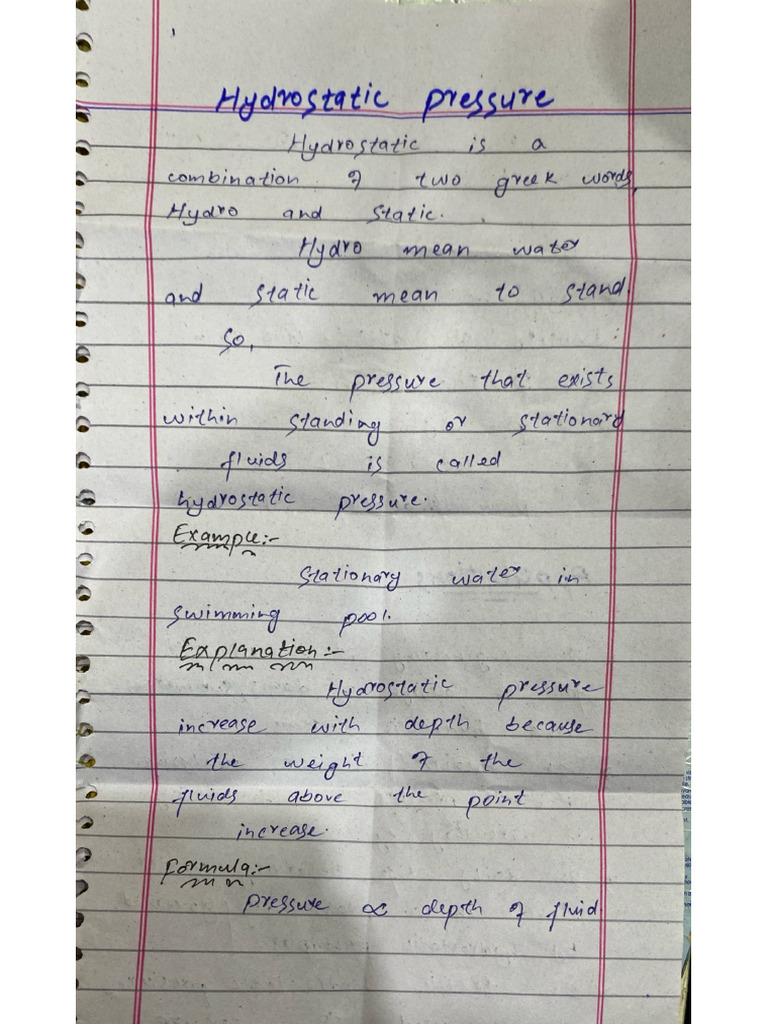 Hydrostatic pressure
Hydrostatic is a
combination of two greek words,
Hydro and static.
Hydro mean water
and static mean to stand.
So,
The pressure that exists
within standing or stationary
fluids is called
hydrostatic pressure.
Example:-
Stationary water in
swimming pool.
Explanation:-
Hydrostatic pressure
increase with depth because
the weight of the
fluids above the point
increase.
Formula:-
pressure ∝ depth of fluid